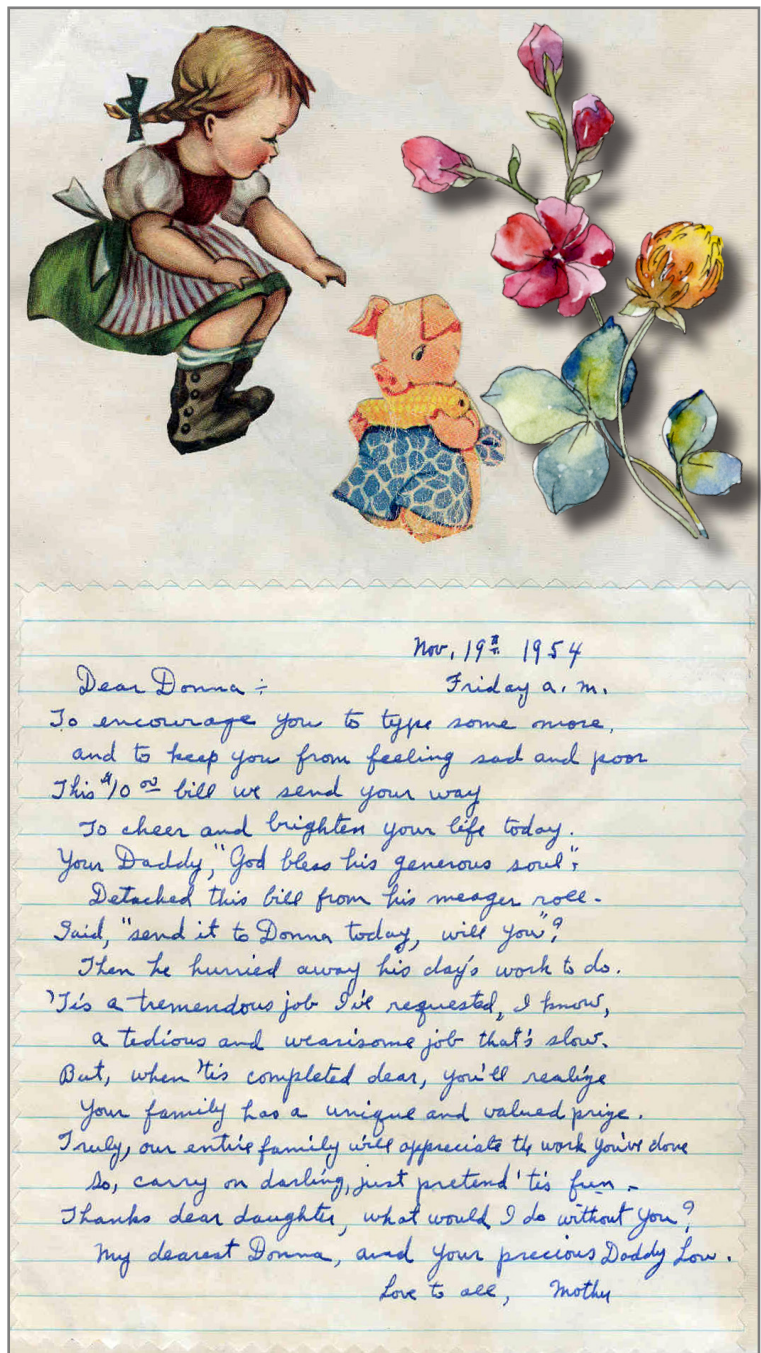 Nov. 19th 1954
Dear Donna ÷ Friday a. m.
To encourage you to type some more,
and to keep you from feeling sad and poor
This $10 00 bill we send your way
To cheer and brighten your life today.
Your Daddy, "God bless his generous soul";
Detached this bill from his meager roll-
Said, "send it to Donna today, will you"?
Then he hurried away his day's work to do.
'Tis a tremendous job I've requested, I know,
a tedious and wearisome job that's slow.
But, when 'tis completed dear, you'll realize
Your family has a unique and valued prize.
Truly, our entire family will appreciate the work you've done
So, carry on darling, just pretend 'tis fun -
Thanks dear daughter, what would I do without you?
My dearest Donna, and your precious Daddy Lou.
Love to all, Mother